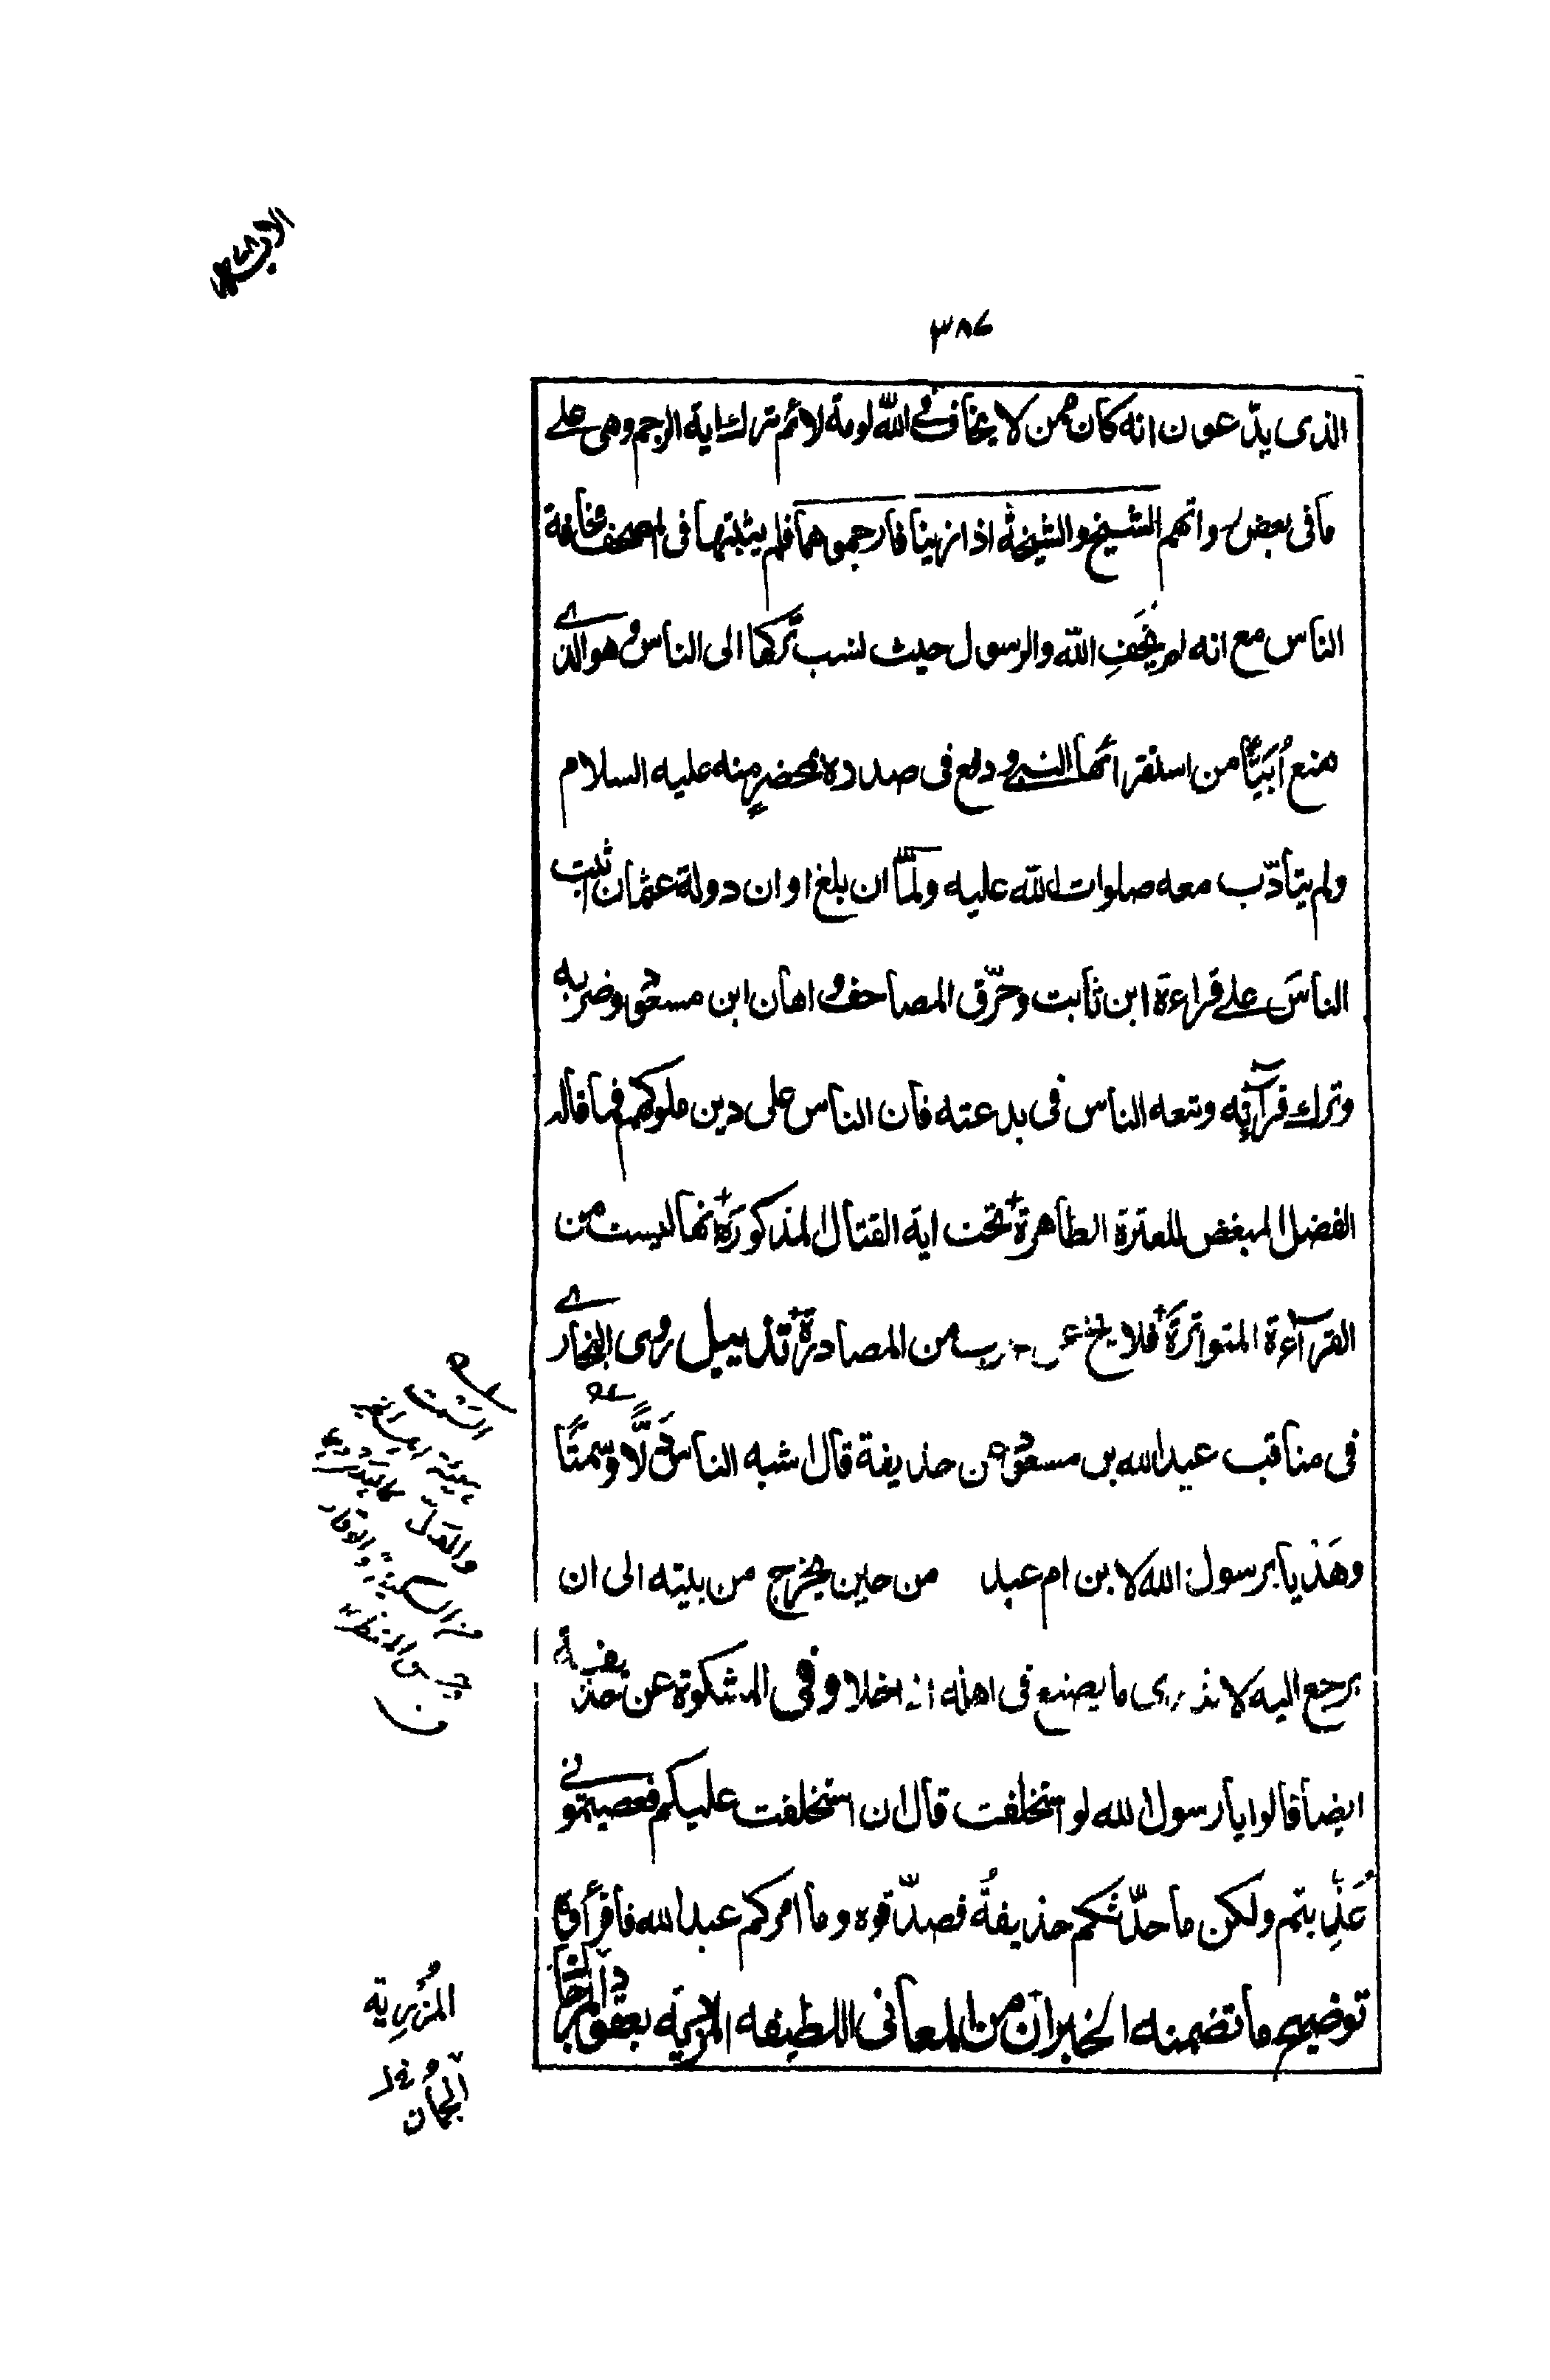 ٣٨٤
الذى يدّعون انه كان ممن لا يخاف فى الله لومة لائم ترك اية الرجم وهى على
ما فى بعض رواتهم الشيخ والشيخة اذا زنينا فارجموهما فلم يثبتها فى المصحف مخافة
الناس مع انه لم يَخَفِ الله والرسول حيث نسب تركها الى الناس وهو الذى
منع اُبَيًّا من استقرائها النبى ودفع فى صدره بمحضرٍ منه عليه السلام
ولم يتأدّب معه صلوات الله عليه ولمّا ان بلغ اوان دولة عثمان
الناسَ على قراءة ابن ثابت وحرّق المصاحف و اهان ابن مسعود وضربه
وترك قرآءته وتبعه الناس فى بدعته فان الناس على دين ملوكهم فما قاله
الفضل المبغض للعترة الطاهرة تحت اية القتال المذكورة انها ليست من
القرآءة المتواترة فلا يخ من المصادرة تذييل روى البخارى
فى مناقب عبد الله بن مسعود عن حذيفة قال اشبه الناس دَلًّا وسَمتًا
وهَديا برسول الله لابن ام عبد من حين يخرج من بيته الى ان
يرجع اليه لا ندرى ما يصنع فى اهله اذا خلا وفى المشكوة عن حذيفة
ايضا قالوا يا رسول الله لو استخلفت قال ان استخلفت عليكم فعصيتمونى
عُذِّبتم ولكن ما حدّثكم حذيفةُ فصدّقوه وما امركم عبد الله فاقرأوه
توضيح ما تضمنه الخبران من المعانى اللطيفه المزرية بعقود
السَمت
والوقار
المُزرِية